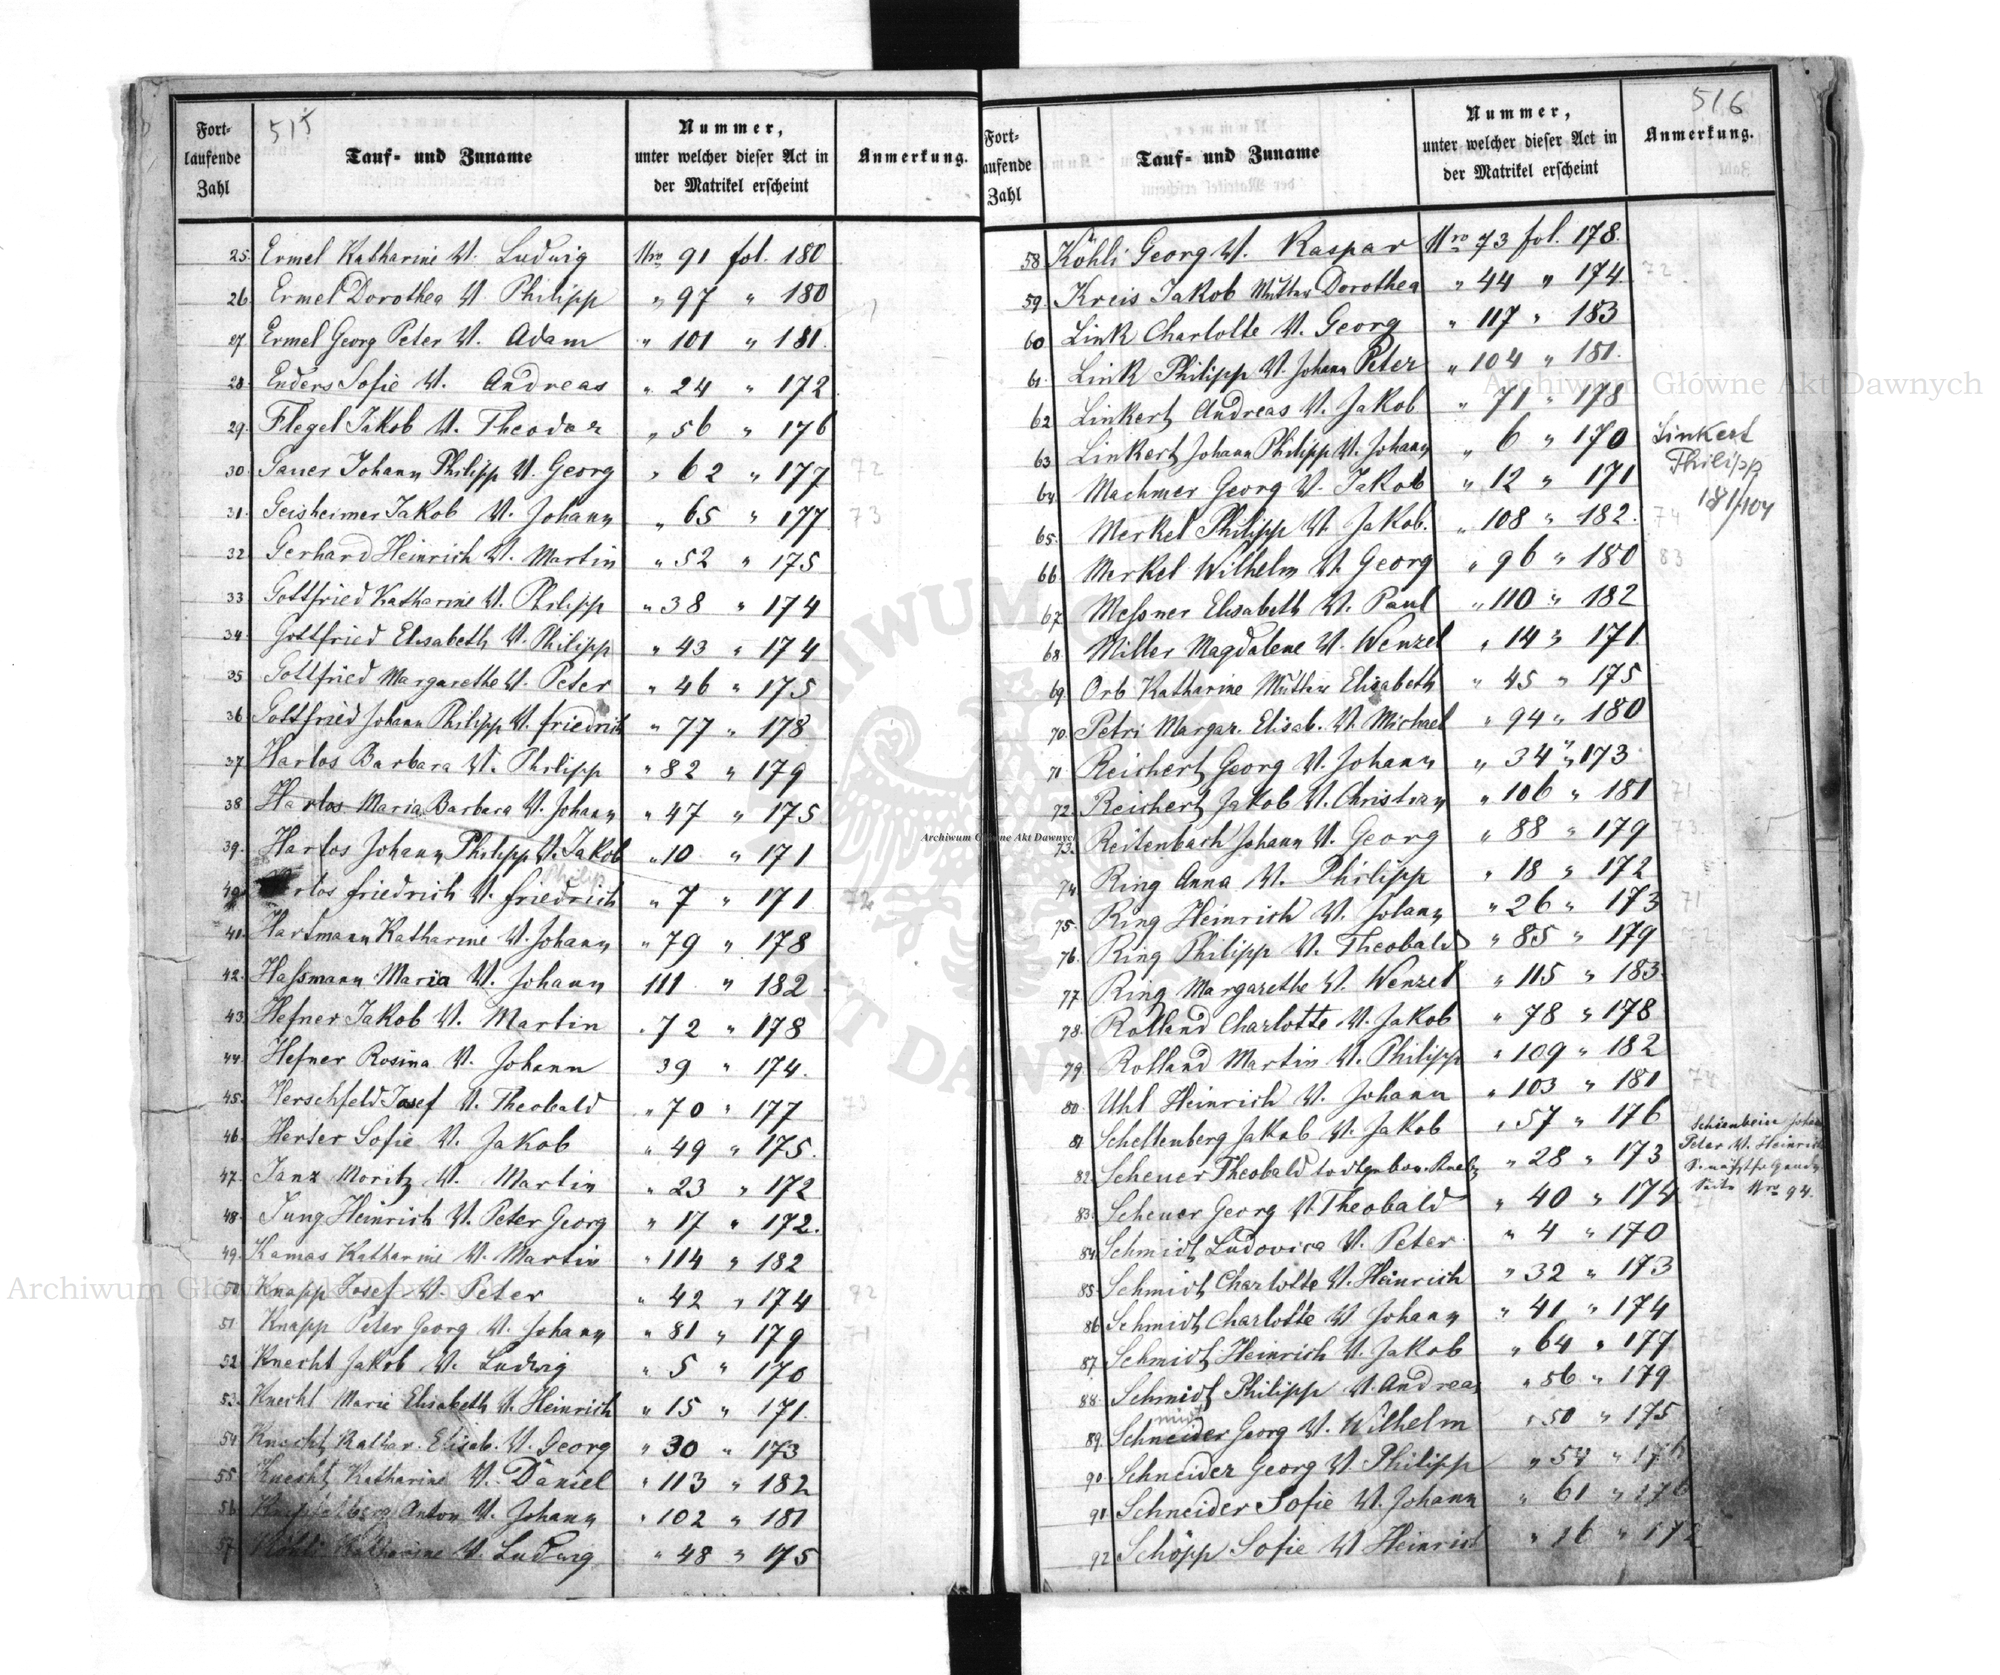 515
Fort-
laufende
Zahl
Tauf- und Zuname
Nummer,
unter welcher dieser Act in
der Matrikel erscheint
Anmerkung.
25. Ermel Katharine V. Ludwig Nro 91 fol. 180
26. Ermel Dorothea V. Philipp " 97 " 180
27. Ermel Georg Peter V. Adam " 101 " 181.
28. Enders Sofie V. Andreas " 24 " 172
29. Flegel Jakob V. Theodor " 56 " 176
30. Gauer Johann Philipp V. Georg " 62 " 177 72
31. Geisheimer Jakob V. Johann " 65 " 177 73
32. Gerhard Heinrich V. Martin " 52 " 175
33. Gottfried Katharine V. Philipp " 38 " 174
34. Gottfried Elisabeth V. Philipp " 43 " 174
35. Gottfried Margarethe V. Peter " 46 " 175
36. Gottfried Johann Philipp V. Friedrich " 77 " 178
37. Harlos Barbara V. Philipp " 82 " 179
38. Harlos Maria Barbara V. Johann " 47 " 175
39. Harlos Johann Philipp V. Jakob " 10 " 171
Philip
40. Harlos Friedrich V. Friedrich " 7 " 171 72
41. Hartmann Katharine V. Johann " 79 " 178
42. Haßmann Maria V. Johann 111 " 182
43. Hefner Jakob V. Martin " 72 " 178
44. Hefner Rosina V. Johann 39 " 174.
45. Herschfeld Josef V. Theobald " 70 " 177 73
46. Herter Sofie V. Jakob " 49 " 175.
47. Janz Moritz V. Martin " 23 " 172
48. Jung Heinrich V. Peter Georg " 17 " 172.
49. Kamas Katharine V. Martin " 114 " 182
50. Knapp Josef V. Peter " 42 " 174 72
51 Knapp Peter Georg V. Johann " 81 " 179 71
52. Knecht Jakob V. Ludwig " 5 " 170
53. Knecht Marie Elisabeth V. Heinrich " 15 " 171.
54 Knecht Kathar. Elisab. V. Georg " 30 " 173
55 Knecht Katharine V. Daniel " 113 " 182
56 Anton V. Johann " 102 " 181
57. Köhli Katharine V. Ludwig " 48 " 175
516
Fort-
laufende
Zahl
Tauf- und Zuname
Nummer,
unter welcher dieser Act in
der Matrikel erscheint
Anmerkung.
58 Köhli Georg V. Kaspar Nro 73 fol. 178.
59. Kreis Jakob Mutter Dorothea " 44 " 174 72
60 Link Charlotte V. Georg " 117 " 183
61. Link Philipp V. Johann Peter " 104 " 181.
62 Linkert Andreas V. Jakob " 71 " 178
63 Linkert Johann Philipp V. Johann " 6 " 170 Linkert
Philipp
181/104
64 Machmer Georg V. Jakob " 12 " 171
65. Merkel Philipp V. Jakob. " 108 " 182. 74
66 Merkel Wilhelm V. Georg " 96 " 180 83
67 Meßner Elisabeth V. Paul " 110 " 182
68 Miller Magdalene V. Wenzel " 14 " 171.
69. Orb Katharine Mutter Elisabeth " 45 " 175
70. Petri Margar. Elisab. V. Michael " 94 " 180
71 Reichert Georg V. Johann " 34 " 173
72. Reichert Jakob V. Christian " 106 " 181 71
73. Reitenbach Johann V. Georg " 88 " 179 73
74 Ring Anna V. Philipp " 18 " 172
75. Ring Heinrich V. Johann " 26 " 173 71
76. Ring Philipp V. Theobald " 85 " 179 72
77 Ring Margarethe V. Wenzel " 115 " 183.
78. Rolland Charlotte V. Jakob " 78 " 178
79. Rolland Martin V. Philipp " 109 " 182
80. Uhl Heinrich V. Johann " 103 " 181 74
81 Schellenberg Jakob V. Jakob " 57 " 176
Schienbein Johann
Peter V. Heinrich
S. nächstfolgende
Seite Nro 94.
82. Scheuer Theobald todtgebor. Knabe " 28 " 173
83. Scheuer Georg V. Theobald " 40 " 174
84 Schmidt Ludovica V. Peter " 4 " 170
85. Schmidt Charlotte V. Heinrich " 32 " 173
86 Schmidt Charlotte V. Johann " 41 " 174
87. Schmidt Heinrich V. Jakob " 64 " 177
88. Schmidt Philipp V. Andreas " 86 " 179
midt
89. Schneider Georg V. Wilhelm " 50 " 175
90. Schneider Georg V. Philipp " 54 " 176
91 Schneider Sofie V. Johann " 61 " 176
92 Schöpp Sofie V. Heinrich " 26 " 172
Archiwum Główne Akt Dawnych
Archiwum Główne Akt Dawnych
Archiwum Główne Akt Dawnych